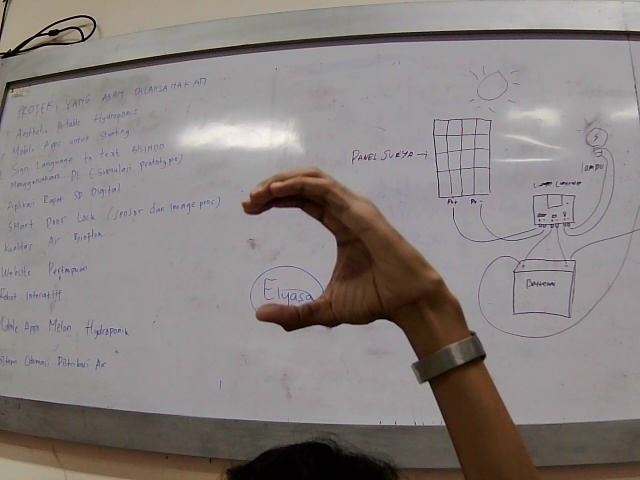 PROJEK YANG AKAN DILAKSANAKAN
Aesthetic Portable Hydroponic
Mobile Apps untuk Stunting
Sign Language to text BISINDO
Menggunakan DL (Simulasi prototype)
Aplikasi Rapor SD Digital
Smart Door Lock (sensor dan image proc)
Kualitas Air Bioflok
Website Pertanian
Robot Interaktif
Mobile Apps Melon Hydroponik
Sistem Otomasi Distribusi Air
Elyasa
PANEL SURYA →
P+
P-
LAMPU
Baterai
+
-